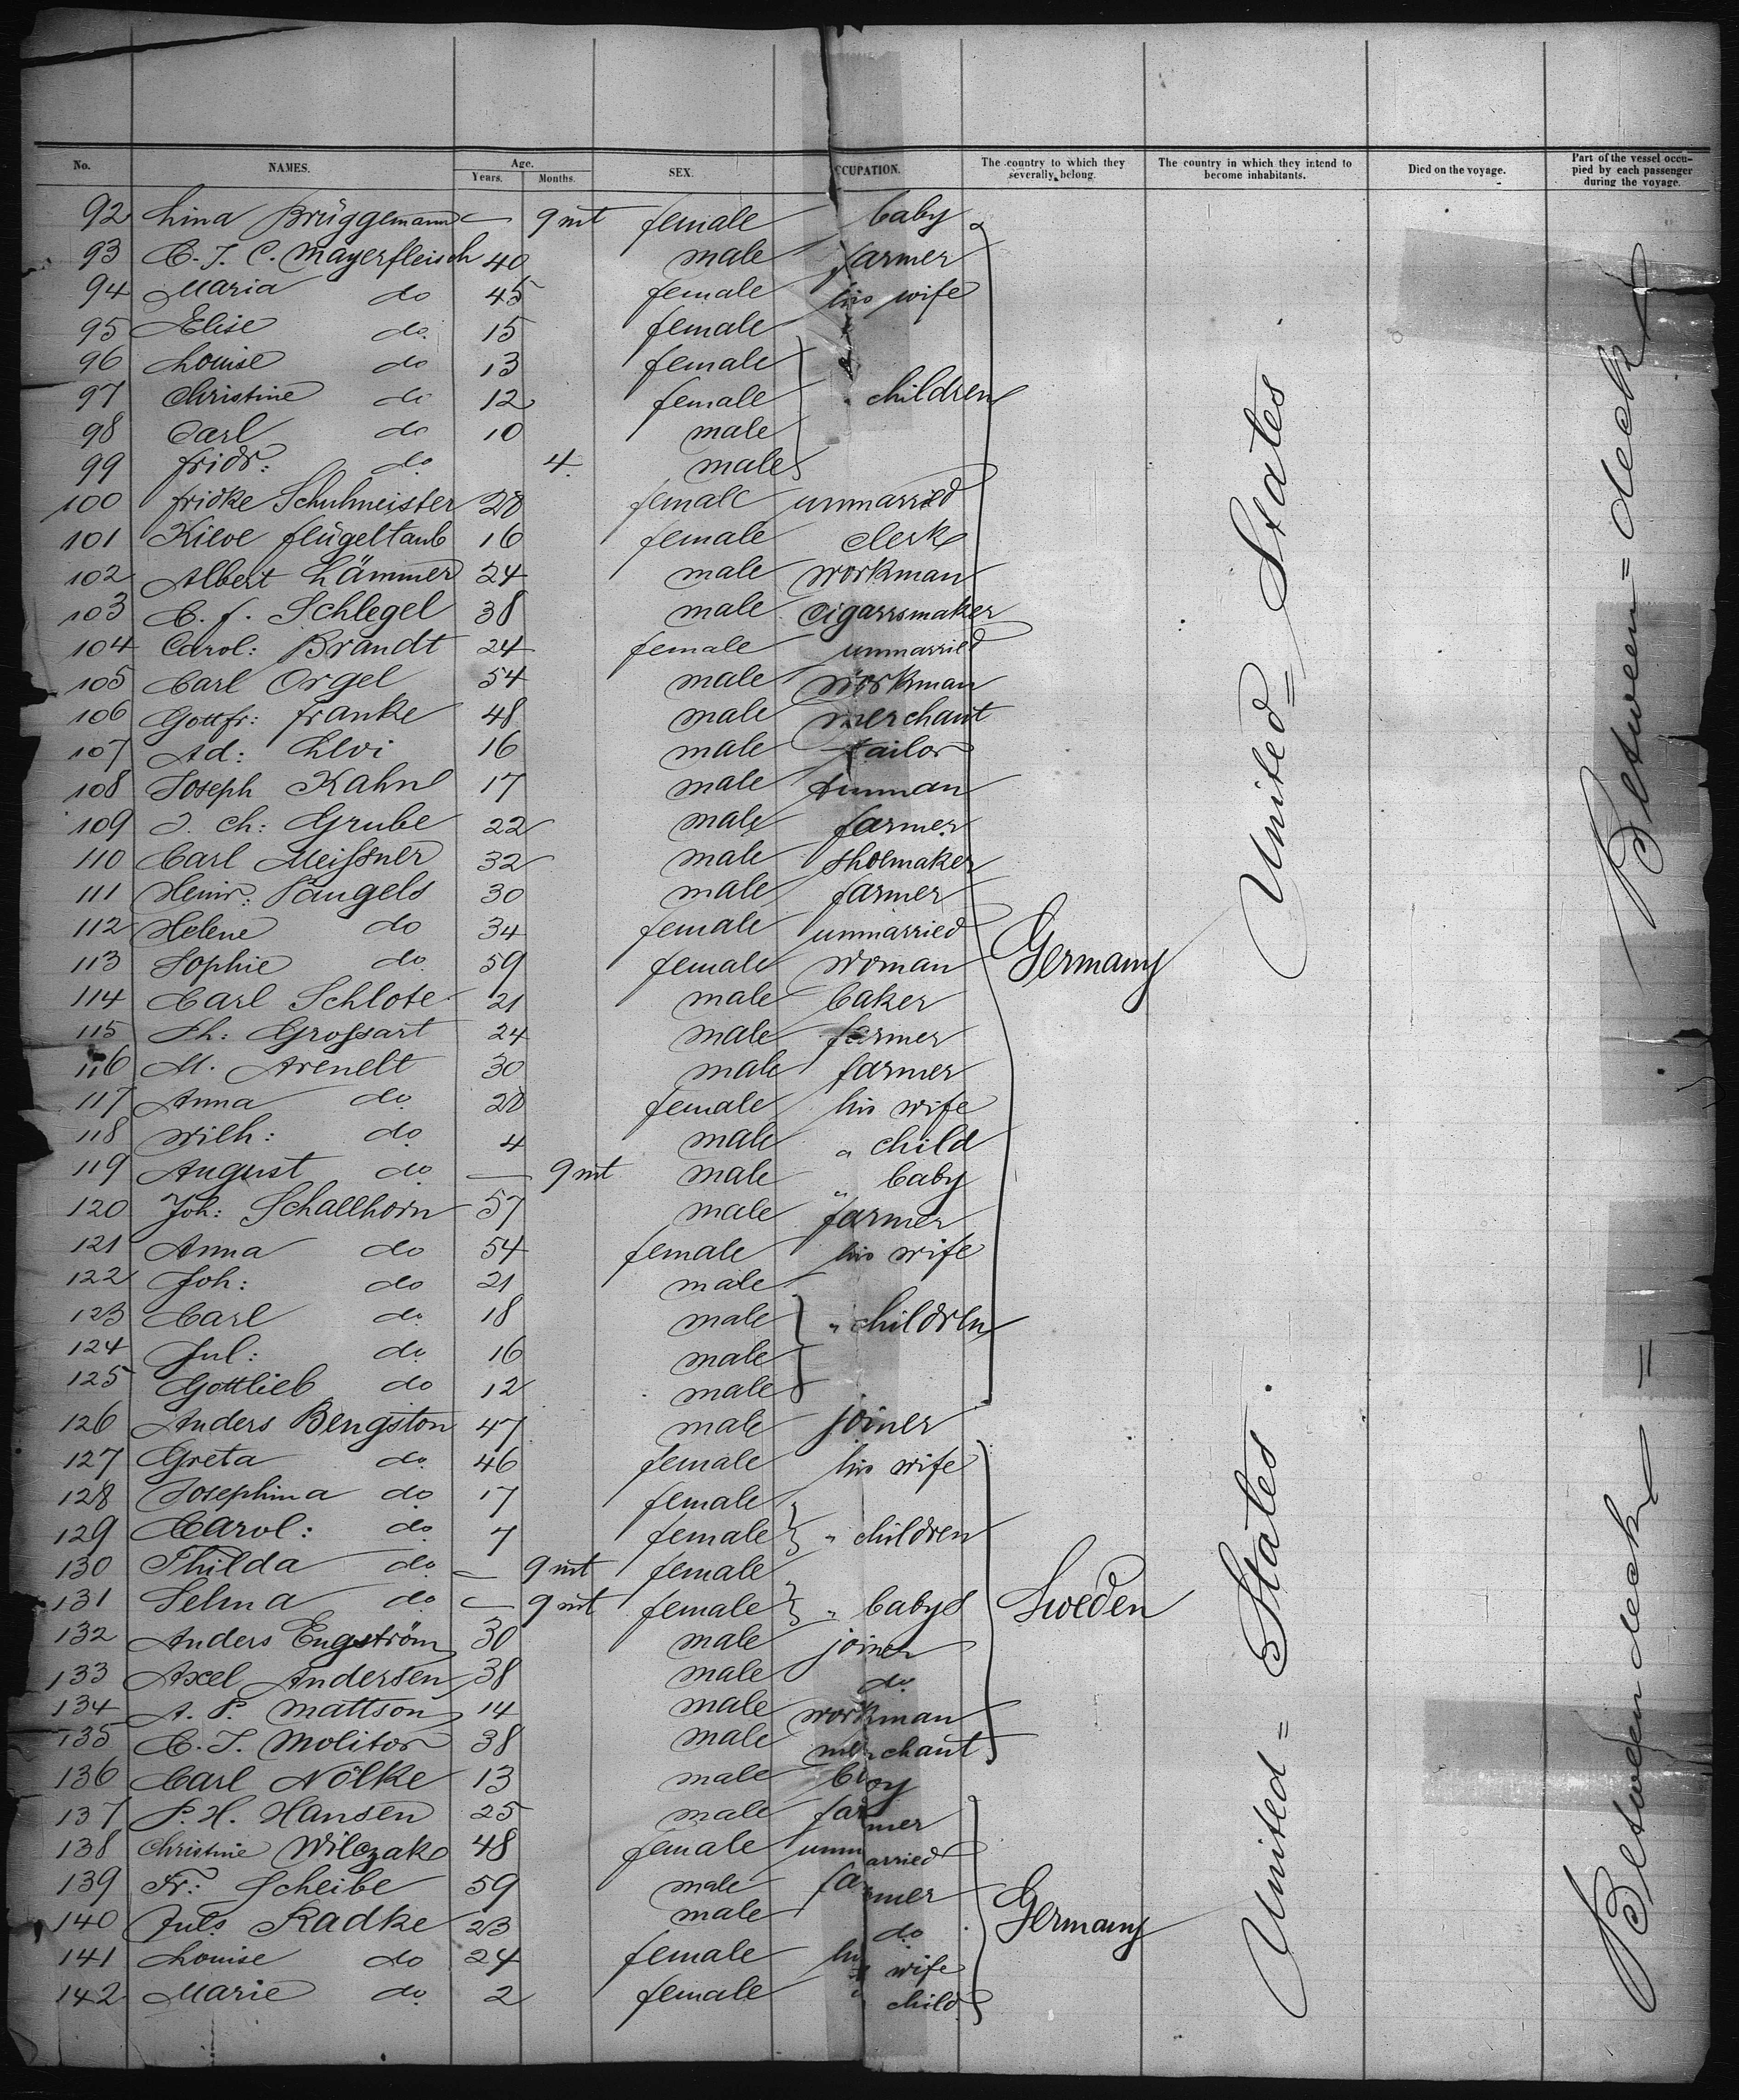 No. NAMES. Age. Years. Months. SEX. OCCUPATION. The country to which they severally belong. The country in which they intend to become inhabitants. Died on the voyage. Part of the vessel occupied by each passenger during the voyage.
92 Lina Brüggemann — 9 mt female baby
93 C. J. C. Mayerfleisch 40 male farmer
94 Maria do 45 female his wife
95 Elise do. 15 female
96 Louise do 13 female
97 Christine do 12 female " children
98 Carl do 10 male
99 Fridr: do. 4. male
100 Fridke Schuhmeister 28 female unmarried
101 Kieve Flügeltaub 16 female clerk
102 Albert Lämmer 24 male workman
103 C. F. Schlegel 38 male cigarrsmaker
104 Carol: Brandt 24 female unmarried
105 Carl Orgel 54 male workman
106 Gottfr: Franke 48 male merchant
107 Ad: Levi 16 male tailor
108 Joseph Kahn 17 male tinman
109 J. Ch: Grube 22 male farmer
110 Carl Meißner 32 male shoemaker
111 Heinr: Pangels 30 male farmer
112 Helene do 34 female unmarried
113 Sophie do. 59 female woman Germany United=States.
114 Carl Schlote 21 male baker
115 Ph: Großart 24 male farmer
116 M. Arendt 30 male farmer
117 Anna do. 28 female his wife
118 Wilh: do. 4 male " child
119 August do. — 9 mt male " baby
120 Joh: Schallhorn 57 male farmer
121 Anna do 54 female his wife
122 Joh: do 21 male
123 Carl do. 18 male " children
124 Jul: do. 16 male
125 Gottlieb do 12 male
126 Anders Bengston 47 male joiner
127 Greta do. 46 female his wife
128 Josephina do. 17 female
129 Carol: do. 7 female " children
130 Thilda do. — 9 mt female
131 Selma do — 9 mt female " babys Sweden
132 Anders Engström 30 male joiner
133 Axel Andersen 38 male do.
134 A. P. Mattson 14 male workman
135 C. J. Molitor 38 male merchant
136 Carl Nölke 13 male boy
137 P. H. Hansen 25 male farmer
138 Christine Wilczak 48 female unmarried
139 Fr: Scheibe 59 male farmer
140 Juls Radke 23 male do. Germany United=States.
141 Louise do 24 female his wife
142 Marie do. 2 female " child
Between=deck
Between deck =